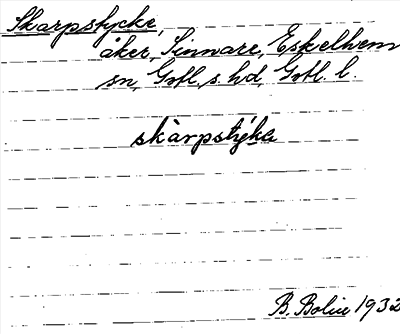 Skarpstycke,
åker, Sinnare, Eskelhem
sn, Gotl. s. hd, Gotl. l.
skàrpstýkα
B. Bolin 1932